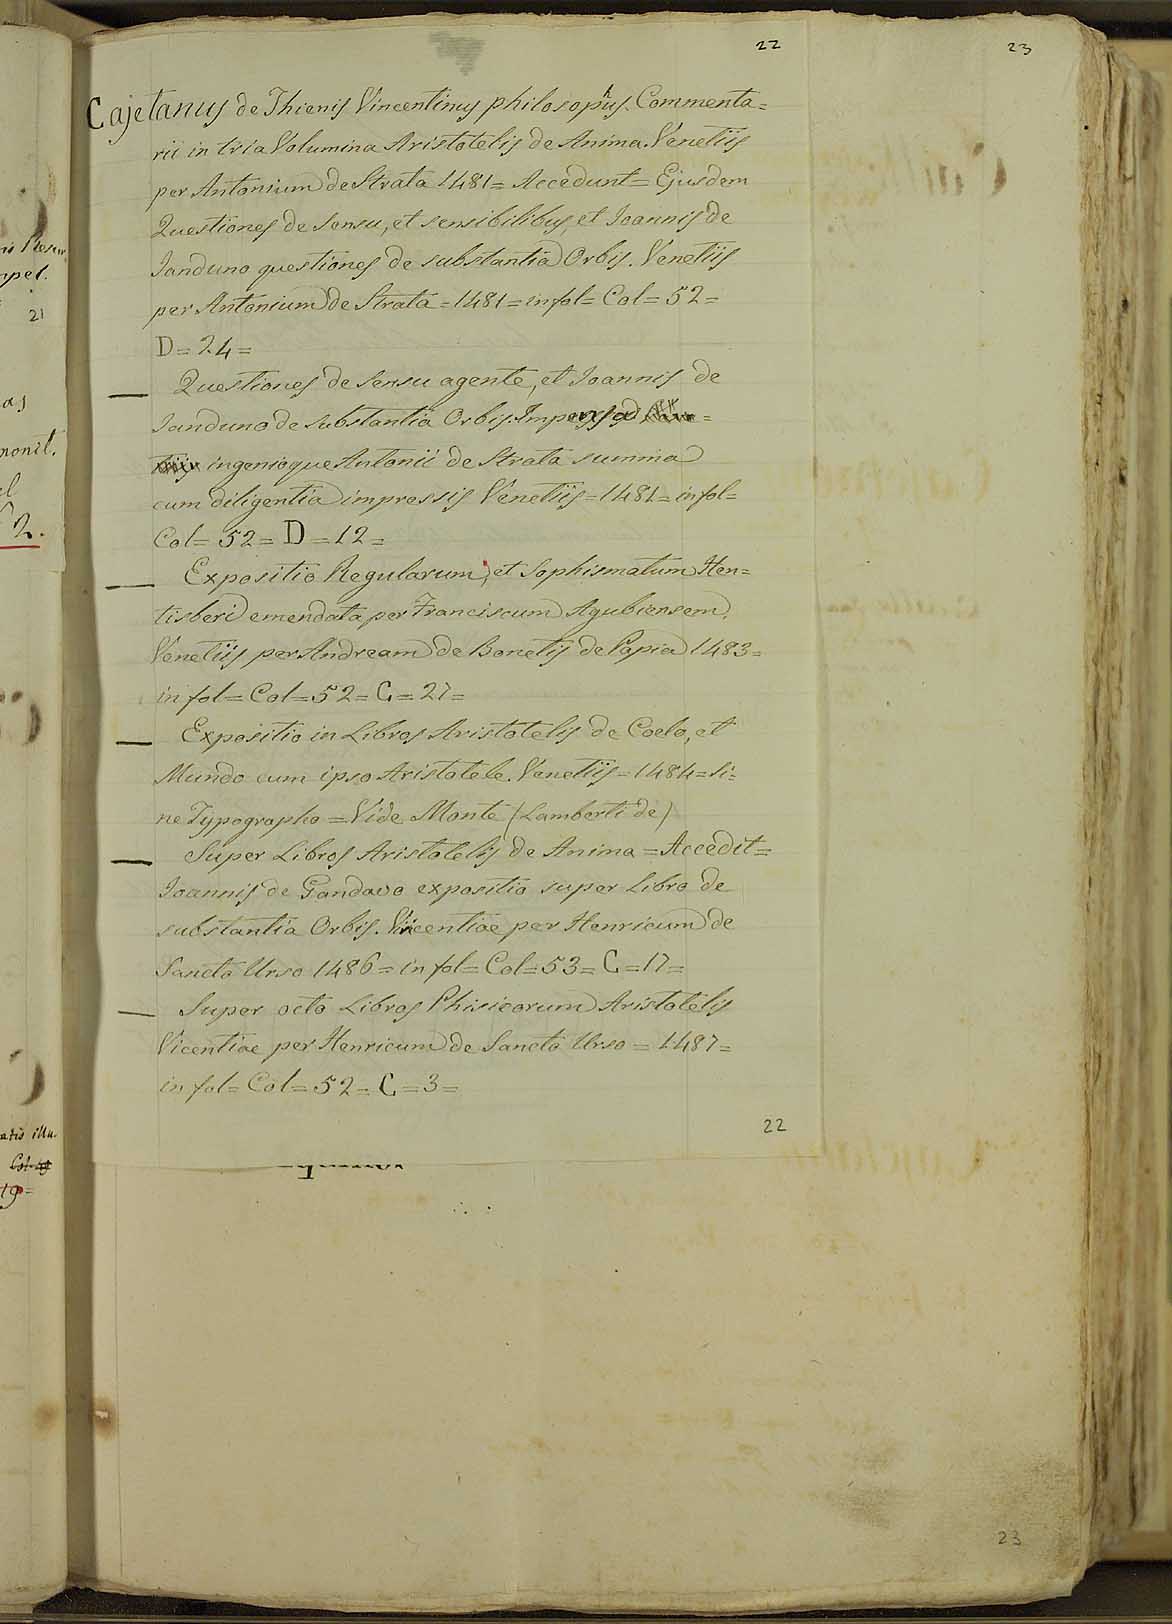 22
23
Cajetanus de Thienis Vincentinus philosophus. Commenta=
rii in tria Volumina Aristotelis de Anima. Venetiis
per Antonium de Strata 1481 = Accedunt = Ejusdem
Questiones de Sensu, et sensibilibus, et Joannis de
Janduno questiones de substantia Orbis. Venetiis
per Antonium de Strata = 1481 = in fol = Col = 52 =
D = 24 =
— Questiones de sensu agente, et Joannis de
Janduno de substantia Orbis. Impensa =
ingenioque Antonii de Strata summa
cum diligentia impressis Venetiis = 1481 = in fol =
Col = 52 = D = 12 =
— Expositio Regularum, et Sophismatum Hen=
tisberi emendata per Franciscum Agubiensem.
Venetiis per Andream de Bonetis de Papia 1483 =
in fol = Col = 52 = C = 27 =
— Expositio in Libros Aristotelis de Coelo, et
Mundo cum ipso Aristotele. Venetiis = 1484 = si=
ne Typographo = Vide Monte (Lamberti de)
— Super Libros Aristotelis de Anima = Accedit =
Joannis de Gandavo expositio super Libro de
substantia Orbis. Vicentiae per Henricum de
Sancto Urso 1486 = in fol = Col = 53 = C = 17 =
— Super octo Libros Phisicorum Aristotelis
Vicentiae per Henricum de Sancto Urso = 1487 =
in fol = Col = 52 = C = 3 =
22
23
21
nonil.
2.
illu.
19=